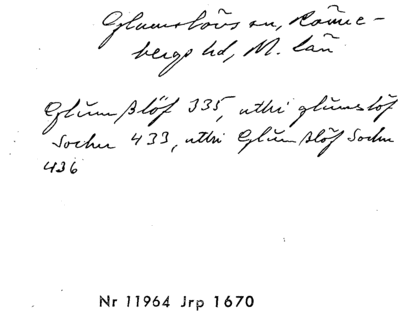 Glumslövs sn, Rönne-
bergs hd, M. län
Glŭmslöf 335, uthi glŭmslöf
Sochn 433, uthi Glŭmslöf Sochn
436
Nr 11964 Jrp 1670